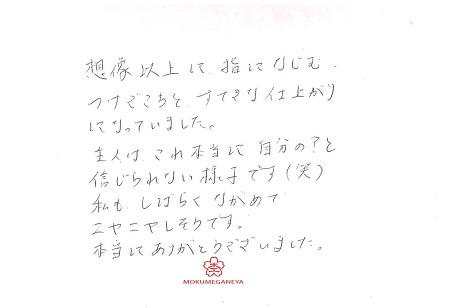 想像以上に、指になじむ、
つけごこちと、すてきな仕上がり
になっていました。
主人は、これ本当に自分の？と
信じられない様子です(笑)
私も、しばらくながめて
ニヤニヤしそうです。
本当にありがとうございました。
MOKUMEGANEYA